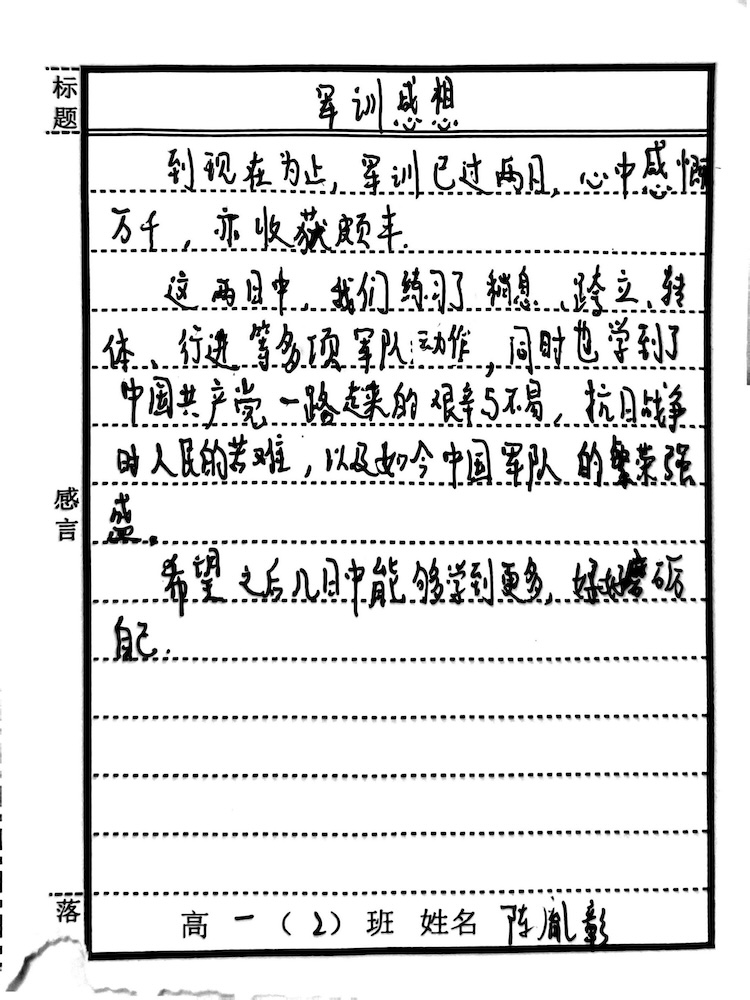 标题
军训感想
到现在为止，军训已过两日，心中感慨
万千，亦收获颇丰.
这两日中，我们练习了稍息、跨立、转
体、行进等多项军队动作，同时也学到了
中国共产党一路走来的艰辛与不易，抗日战争
时人民的苦难，以及如今中国军队的繁荣强
盛。
感言
希望之后几日中能够学到更多，好好磨砺
自己.
落
高一（2）班 姓名 陈胤彰